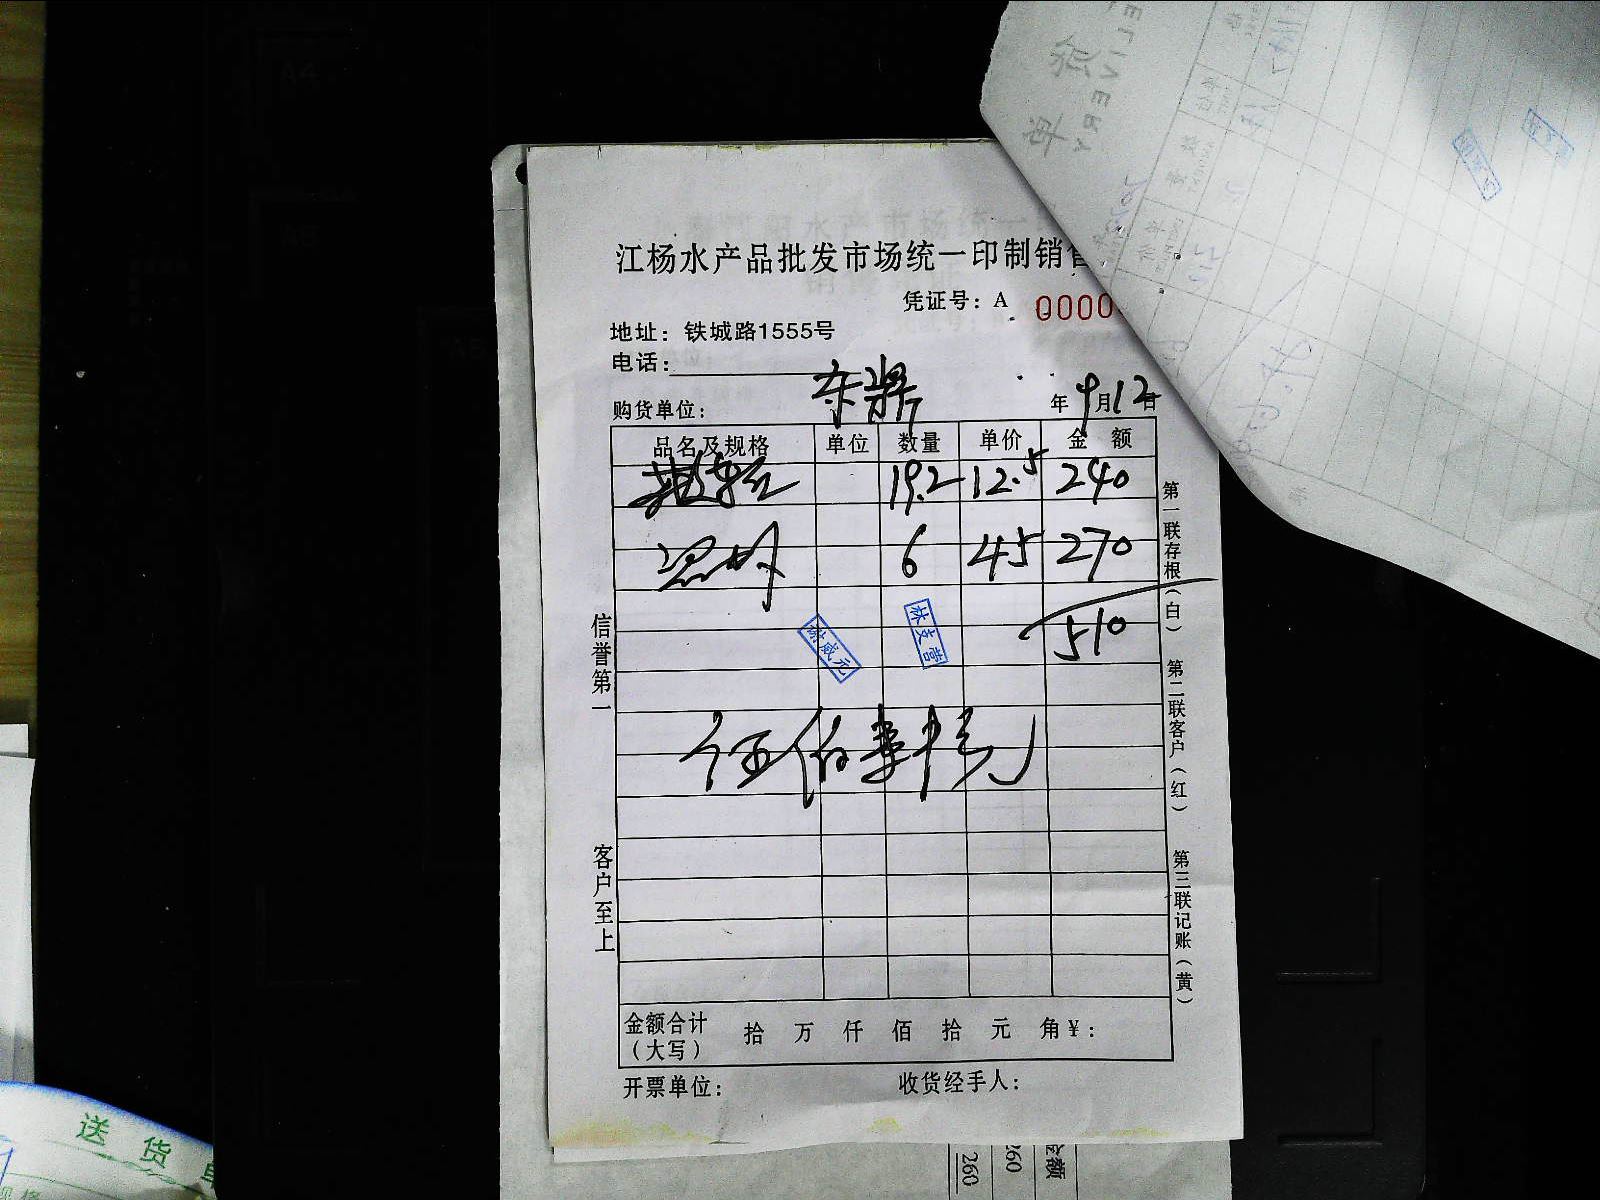 江杨水产品批发市场统一印制销售
凭证号：A 0000
地址：铁城路1555号
电话：
购货单位： 东鼎 年 9月12日
品名及规格 单位 数量 单价 金 额
19.2 12.5 240
6 45 270
510
林威元 林支营
伍佰壹十元
信誉第一
客户至上
第一联存根（白）
第二联客户（红）
第三联记账（黄）
金额合计（大写） 拾 万 仟 佰 拾 元 角￥：
开票单位： 收货经手人：
送 货
金额
260
260